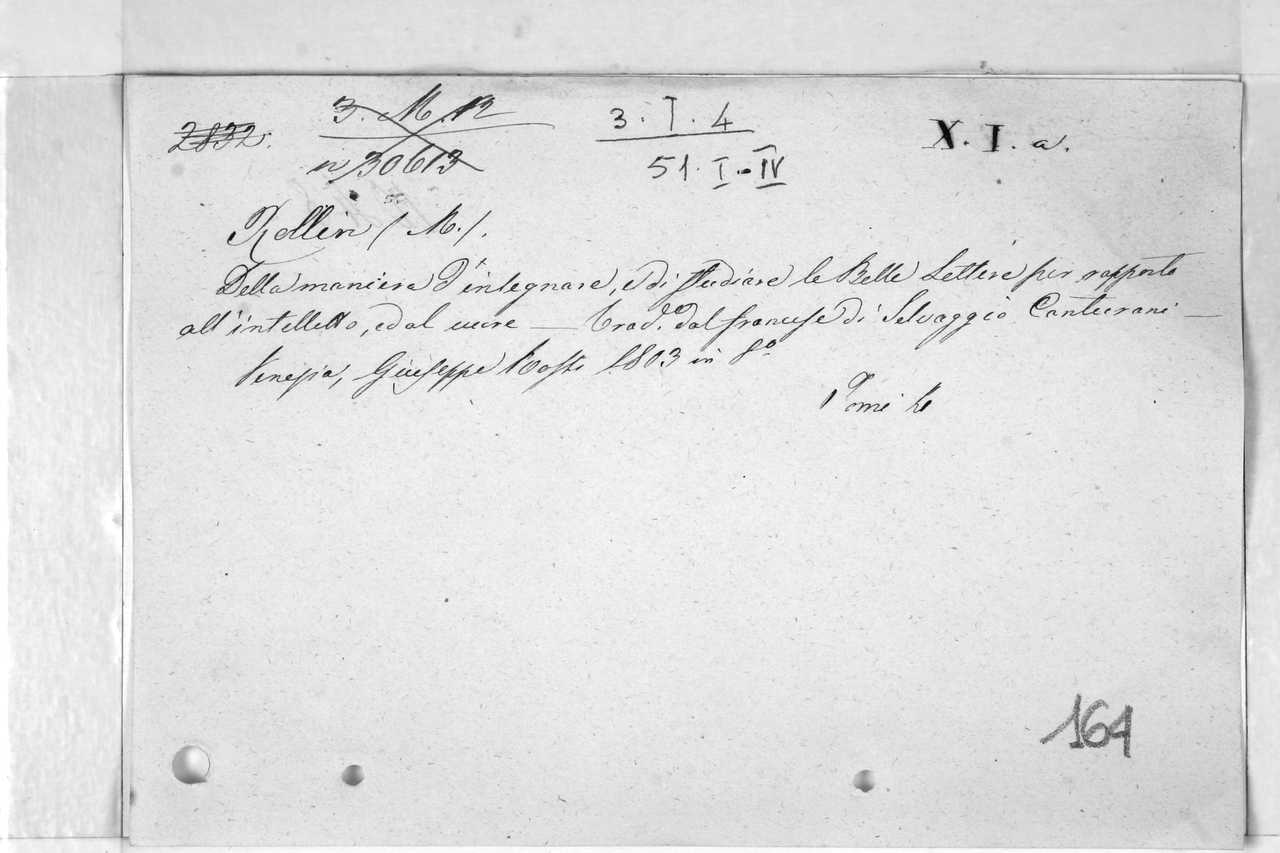 2832. 3. M. 12 3. I. 4 X. I. a.
n 30613 51. I-IV
Rollin (M.).
Della maniera d'insegnare, e di studiare le Belle Lettere per rapporto
all'intelletto, ed al cuore — Trad.o dal francese di Selvaggio Canturani —
Venezia, Giuseppe Rossi 1803 in 8o
Tomi
164